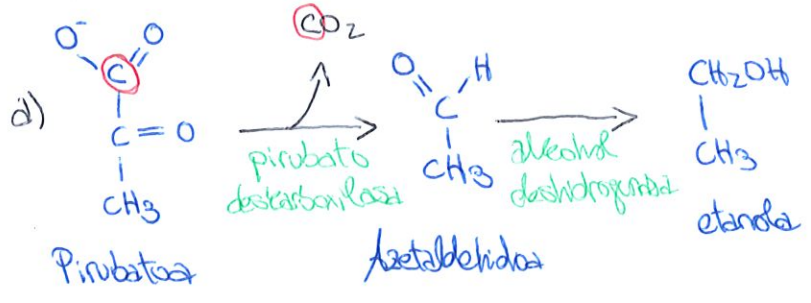 d)
O⁻ O
C
C = O
CH3
Pirubatoa
CO2
pirubato
deskarboxilasa
O H
C
CH3
Azetaldehidoa
alkohol
deshidrogenasa
CH2OH
CH3
etanola